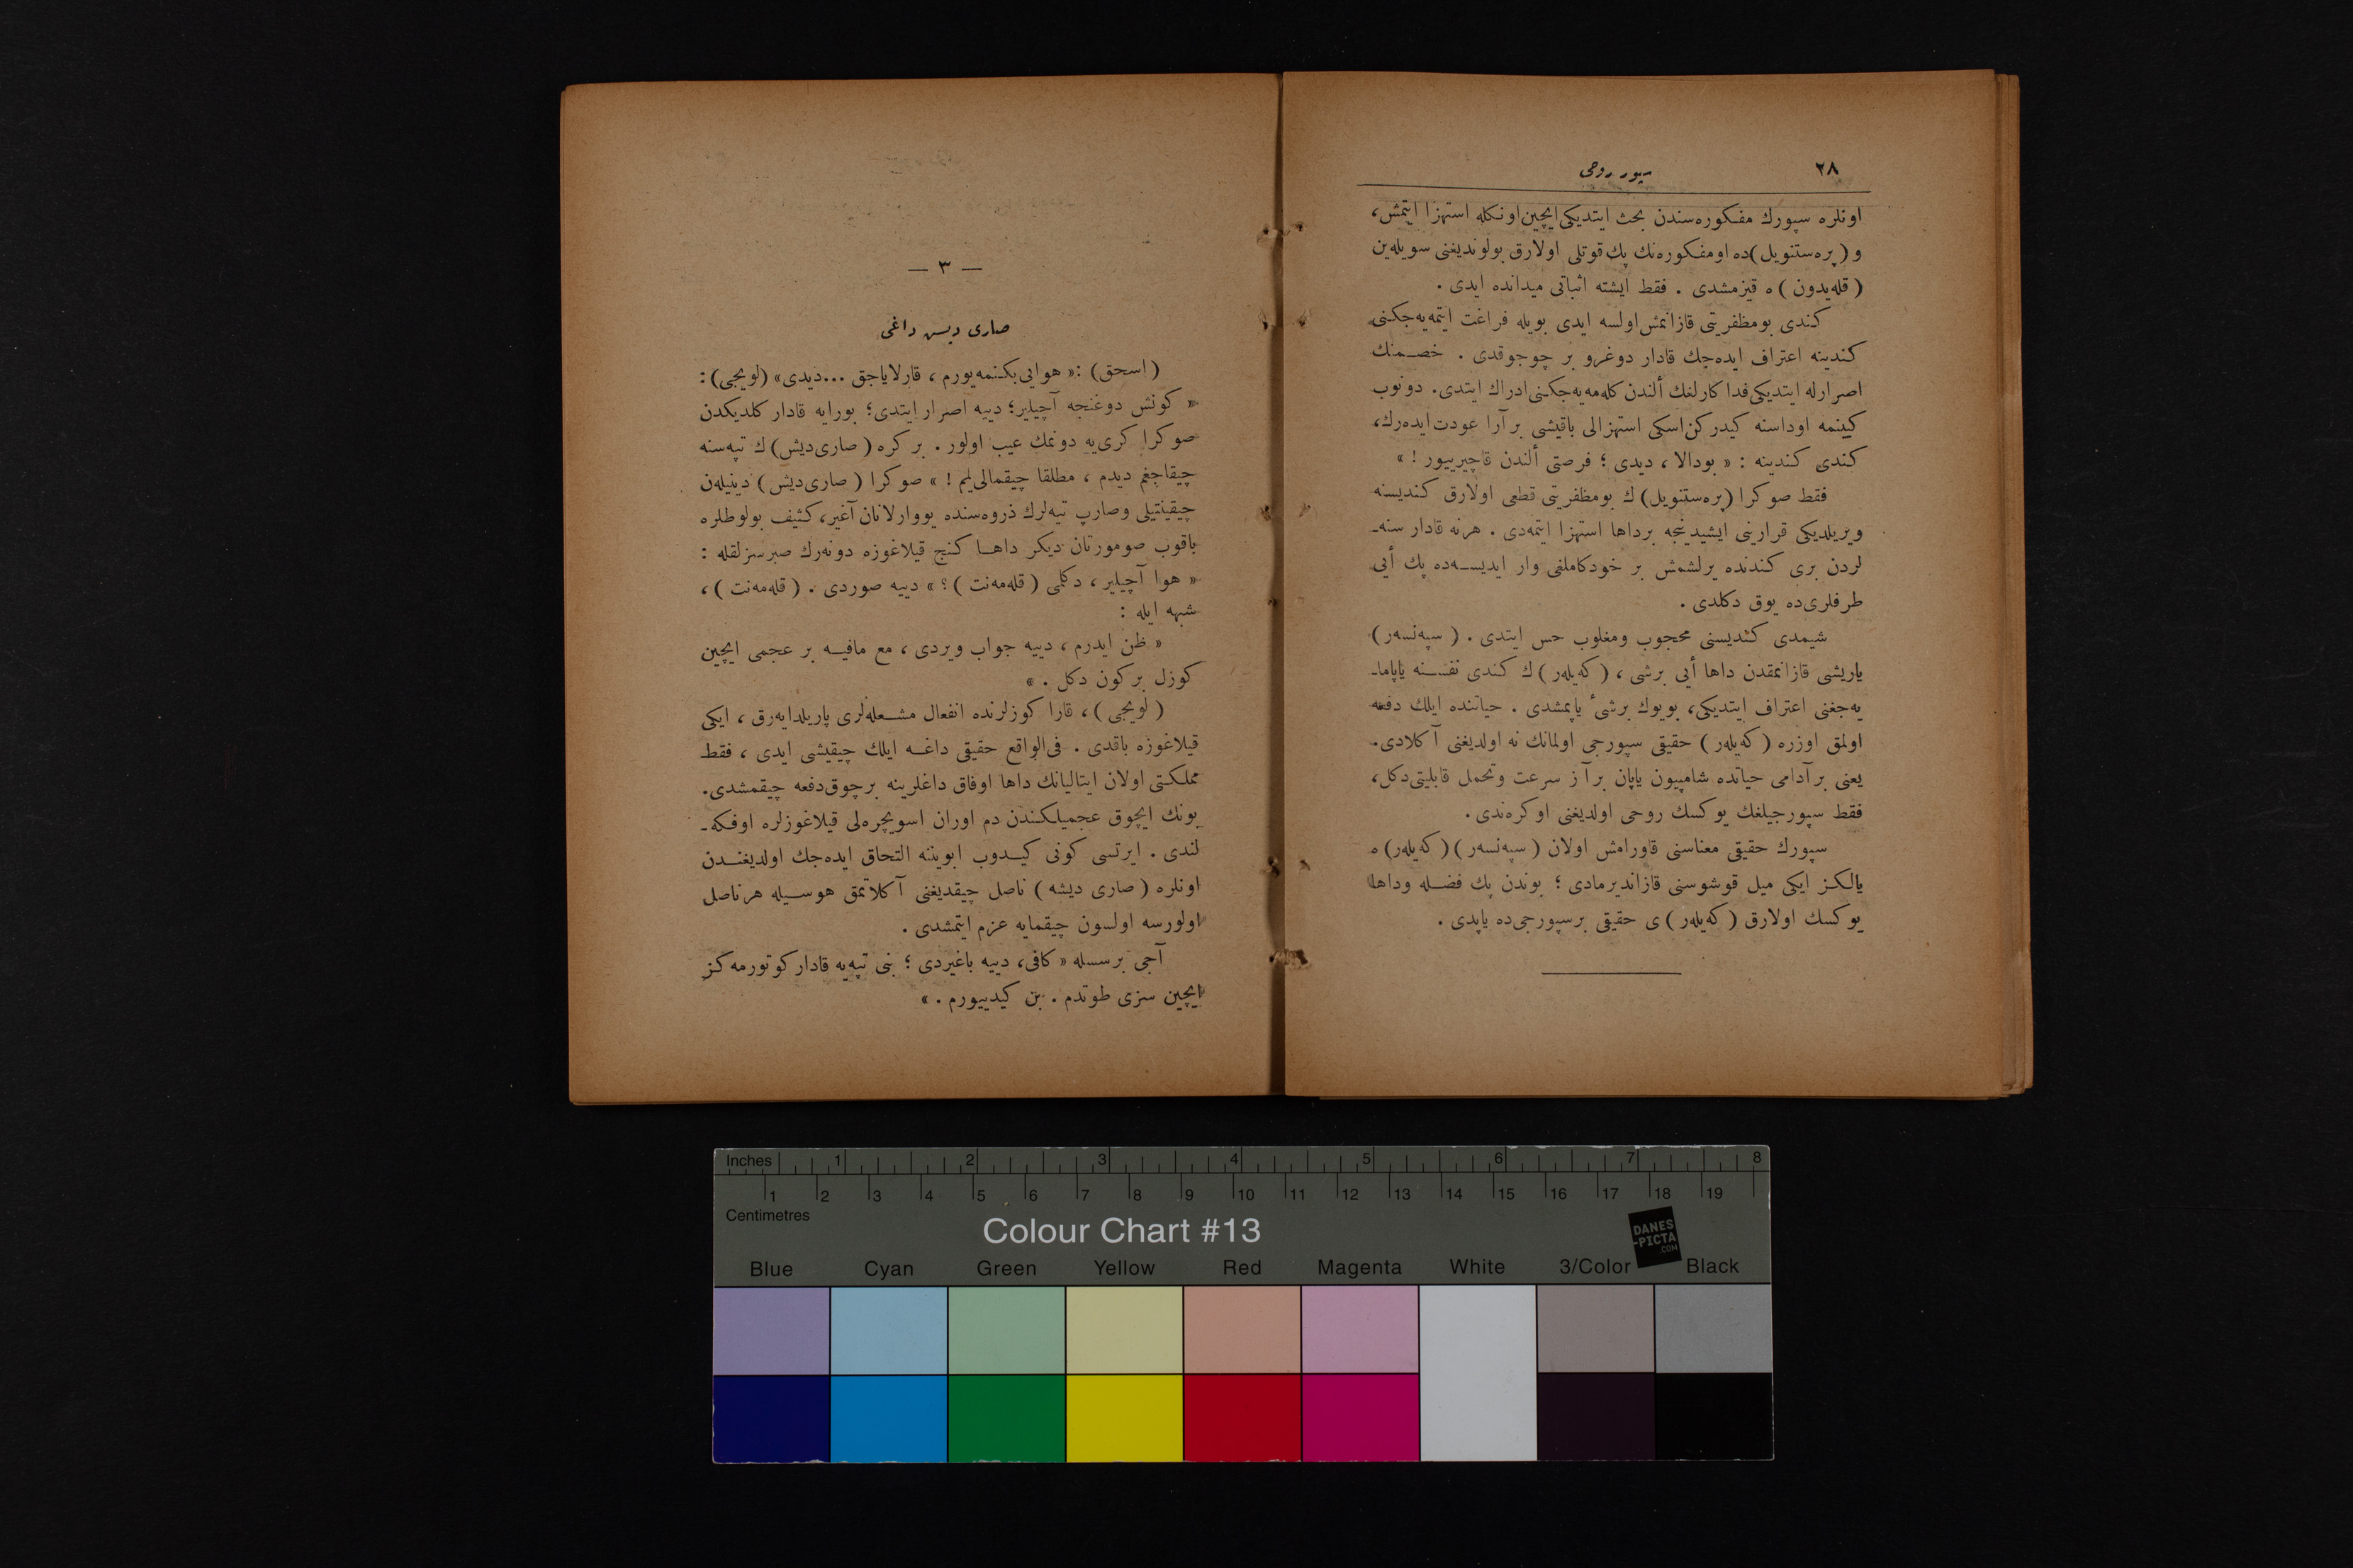 ٢٨
سپور روحی
اونلره سپورك مفكوره‌سندن بحث ايتديكى ايچين اونكله استهزا ايتمش،
و (پره‌ستنويل) ده او مفكوره‌نك پك قوتلى اولارق بولونديغنى سويله‌ين
(قله‌يدون) ه قيزمشدى . فقط ايشته اثباتى ميدانده ايدى .
كندى بو مظفريتى قازانمش اولسه ايدى بويله فراغت ايتمه‌يه‌جكنى
كندينه اعتراف ايده‌جك قادار دوغرو بر چوجوقدى . خصمنك
اصرارله ايتديكى فداكارلغك ألندن كله‌مه‌يه‌جكنى ادراك ايتدى. دونوب
كيينمه اوداسنه كيدركن اسكى استهزالى باقيشى بر آرا عودت ايده‌رك،
كندى كندينه : « بودالا ، ديدى ؛ فرصتى ألندن قاچيرييور ! »
فقط صوكرا (پره‌ستنويل) ك بو مظفريتى قطعى اولارق كنديسنه
ويريلديكى قرارينى ايشيدينجه برداها استهزا ايتمه‌دى . هرنه قادار سنه‌ـ
لردن برى كندنده يرلشمش بر خودكاملغى وار ايديسه‌ده پك أيى
طرفلرى‌ده يوق دكلدى .
شيمدى كنديسنى محجوب ومغلوب حس ايتدى . (سپه‌نسه‌ر)
ياريشى قازانمقدن داها أيى برشى ، (كه‌يله‌ر) ك كندى نفسنه ياپاماـ
يه‌جغنى اعتراف ايتديكى، بويوك برشئ ياپمشدى . حياتنده ايلك دفعه
اولمق اوزره (كه‌يله‌ر) حقيقى سپورجى اولمانك نه اولديغنى آكلادى.
يعنى بر آدامى حياتده شامپيون ياپان بر آز سرعت وتحمل قابليتى دكل،
فقط سپورجيلغك يوكسك روحى اولديغنى اوكره‌ندى .
سپورك حقيقى معناسنى قاورامش اولان (سپه‌نسه‌ر) (كه‌يله‌ر) ه
يالكز ايكى ميل قوشوسنى قازانديرمادى ؛ بوندن پك فضله وداها
يوكسك اولارق (كه‌يله‌ر) ى حقيقى برسپورجى‌ده ياپدى .
— ٣ —
صارى ديس داغى
(اسحق) : « هوايى بكنمه‌يورم ، قارلاياجق ... ديدى » (لويجى) :
« كونش دوغنجه آچيلير ؛ دييه اصرار ايتدى ؛ بورايه قادار كلديكدن
صوكرا كرى‌يه دونمك عيب اولور . بر كره (صارى‌ديش) ك تپه‌سنه
چيقاجغم ديدم ، مطلقا چيقمالى‌يم ! » صوكرا (صارى‌ديش) دينيله‌ن
چيقينتيلى وصارپ تپه‌لرك ذروه‌سنده يووارلانان آغير، كثيف بولوطلره
باقوب صومورتان ديكر داها كنج قيلاغوزه دونه‌رك صبرسزلقله :
« هوا آچيلير ، دكلمى (قله‌مه‌نت) ؟ » دييه صوردى . (قله‌مه‌نت) ،
شبهه ايله :
« ظن ايدرم ، دييه جواب ويردى ، مع مافيه بر عجمى ايچين
كوزل بركون دكل . »
(لويجى) ، قارا كوزلرنده انفعال مشعله‌لرى پاريلدايه‌رق ، ايكى
قيلاغوزه باقدى . فى‌الواقع حقيقى داغه ايلك چيقيشى ايدى ، فقط
مملكتى اولان ايتاليانك داها اوفاق داغلرينه برچوق دفعه چيقمشدى.
بونك ايچوق عجميلكندن دم اوران اسويچره‌لى قيلاغوزلره اوفكه‌ـ
لندى . ايرتسى كونى كيدوب ابويننه التحاق ايده‌جك اولديغندن
اونلره (صارى ديشه) ناصل چيقديغنى آكلاتمق هوسيله هرناصل
اولورسه اولسون چيقمايه عزم ايتمشدى .
آجى برسسله « كافى، دييه باغيردى ؛ بنى تپه‌يه قادار كوتورمه‌كز
ايچين سزى طوتدم . بن كيدييورم . »
Inches 1 2 3 4 5 6 7 8
1 2 3 4 5 6 7 8 9 10 11 12 13 14 15 16 17 18 19
Centimetres
Colour Chart #13
DANES
-PICTA
.COM
Blue Cyan Green Yellow Red Magenta White 3/Color Black